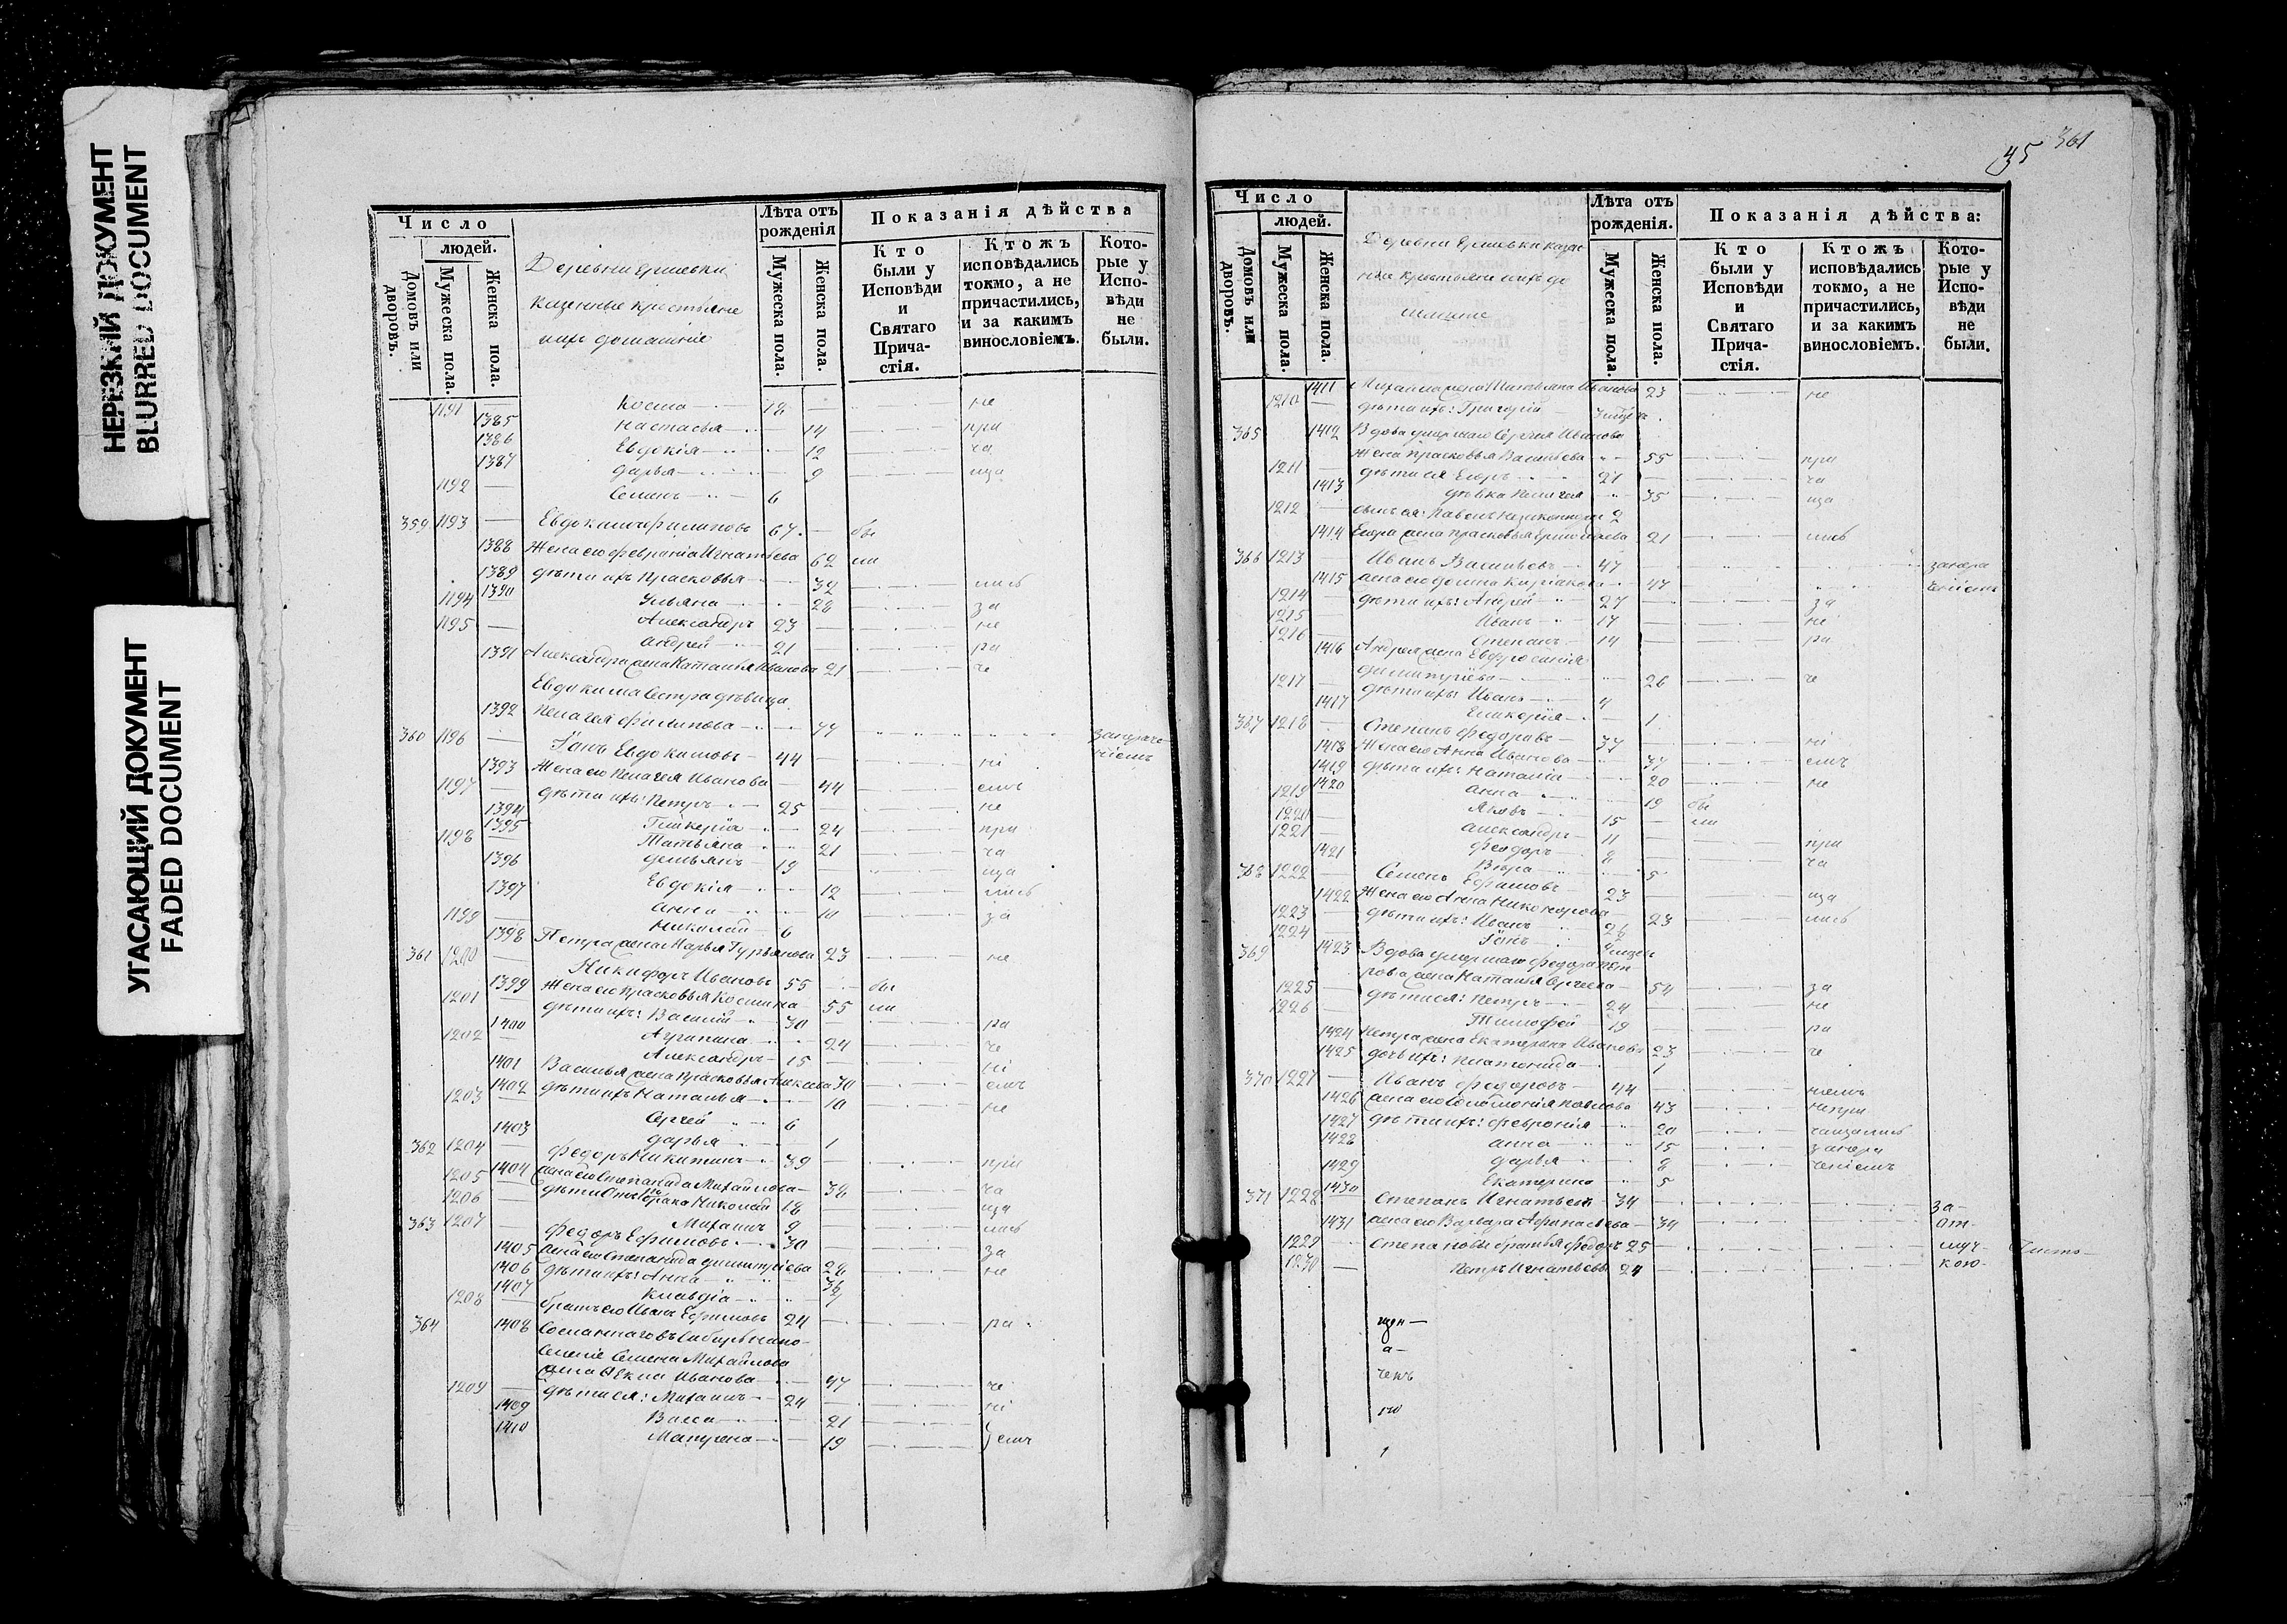 НЕРЕЗКИЙ ДОКУМЕНТ
BLURRED DOCUMENT
УГАСАЮЩИЙ ДОКУМЕНТ
FADED DOCUMENT
Число
людей.
Домовъ или дворовъ.
Мужеска пола.
Женска пола.
Деревни
казенные крестьяне
ихъ домашніе
Лѣта отъ рожденія
Мужеска пола.
Женска пола.
Показанія дѣйства
Кто были у Исповѣди и Святаго Прича-стія.
Ктожъ исповѣдались токмо, а не причастились, и за какимъ винословіемъ.
Кото-рые у Испо-вѣди не были.
1191 Косма 18 не
1385 Настасья 14 при
1386 Евдокія 12 ча
1387 Дарья 9 ща
1192 Семенъ 6
359 1193 Евдокимъ Филиповъ 67 бы
1388 Жена его Февранія Игнатьева 62 ли
1389 дѣти ихъ Прасковья 32 лись
1390 Ульяна 28 за
1194 Александръ 23 не
1195 Андрей 21 ра
1391 Александра жена Наталья Иванова 21 че
Евдокима сестра дѣвица
1392 Пелагея Филипова 44
360 1196 Іоанъ Евдокимовъ 44 ні
1393 Жена его Пелагея Иванова 44 емъ
1197 дѣти ихъ: Петръ 25 не
1394 Гликерія 24 при
1395 Татьяна 21 ча
1198 Демьянъ 19 ща
1396 Евдокія 12 лись
1397 Анна 10 за
1199 Николай 6
1398 Петра жена Марья Гурьянова 23 не
361 1200 Никифоръ Ивановъ 55 бы
1399 Жена его Прасковья Космина 55 ли
1201 дѣти ихъ: Василій 30 ра
1400 Агрипина 24 че
1202 Александръ 15 ні
1401 Василья жена Прасковья 30 емъ
1402 дѣти ихъ Наталья 10 не
1203 Сергей 6
1403 Дарья 1
362 1204 Федоръ Никитинъ 39 при
1404 жена его Степанида Михайлова 38 ча
1205 Николай 18 ща
1206 Михаилъ 9 лись
363 1207 Федоръ Ефимовъ 30 за
1405 жена его Степанида Димитріева 28 не
1406 дѣти ихъ: Анна
1407 Клавдія
1208 братъ его Иванъ Ефимовъ 24 ра
364 1408 Сосланнаго въ Сибирь на по-
селеніе Семена Михайлова
жена Ѳекла Иванова 47 че
1209 дѣти ея: Михаилъ 24 ні
1409 Васса 21
1410 Матрена 19 емъ
361
Число
людей.
Домовъ или дворовъ.
Мужеска пола.
Женска пола.
Деревни казен-
ные крестьяне ихъ до
машніе
Лѣта отъ рожденія.
Мужеска пола.
Женска пола.
Показанія дѣйства:
Кто были у Исповѣди и Святаго Прича-стія.
Ктожъ исповѣдались токмо, а не причастились, и за какимъ винословіемъ.
Кото-рые у Испо-вѣди не были.
1411 Михаила жена Татьяна Иванова 23 не
1210 дѣти ихъ: Григорій
365 1412 Вдова умершаго Сергея Иванова
жена Прасковья Васильева 55 при
1211 дѣти ея Егоръ 21 ча
1413 дѣвка Пелагея 35 ща
1212 сынъ ея: Павелъ 2
1414 Егора жена Прасковья 21 лись
366 1213 Иванъ Васильевъ 47
1415 жена его Домна 47
1214 дѣти ихъ: Андрей 27 за
1215 Иванъ 17 не
1216 Степанъ 14 ра
1416 Андрея жена Евфросинія
Димитріева 26 че
1217 дѣти ихъ: Иванъ 4
1417 Гликерія 1
367 1218 Степанъ Федоровъ 37 ні
1418 Жена его Анна Иванова 37 емъ
1419 дѣти ихъ: Наталія 20 не
1420 Анна 19 бы
1219 Яковъ 15 ли
1220 Александръ 11 при
1221 Феодоръ 8 ча
1421 Вѣра 5
368 1222 Семенъ Ефимовъ 23 ща
1422 Жена его Анна Никонорова 23 лись
1223 дѣти ихъ: Иванъ
1224 Іоанъ
369 1423 Вдова умершаго Федора Пет
рова жена Наталья Сергеева 54 за
1225 дѣти ея: Петръ 24 не
1226 Тимофей 19 ра
1424 Петра жена Екатерина Иванова 23 че
1425 дочь ихъ: Платонида 1
370 1227 Иванъ Федоровъ 44 ніемъ
1426 жена его Соломонія Павлова 43 непри
1427 дѣти ихъ: Февронія 20 чащались
1428 Анна 15 занера
1429 Дарья 8 ченіемъ
1430 Екатерина 5
371 1228 Степанъ Игнатьевъ 34 за-
1431 жена его Варвара Афанасьева 34 от-
1229 Степановы братья Федоръ 25 луч-
1230 Петръ Игнатьевъ 24 кою-